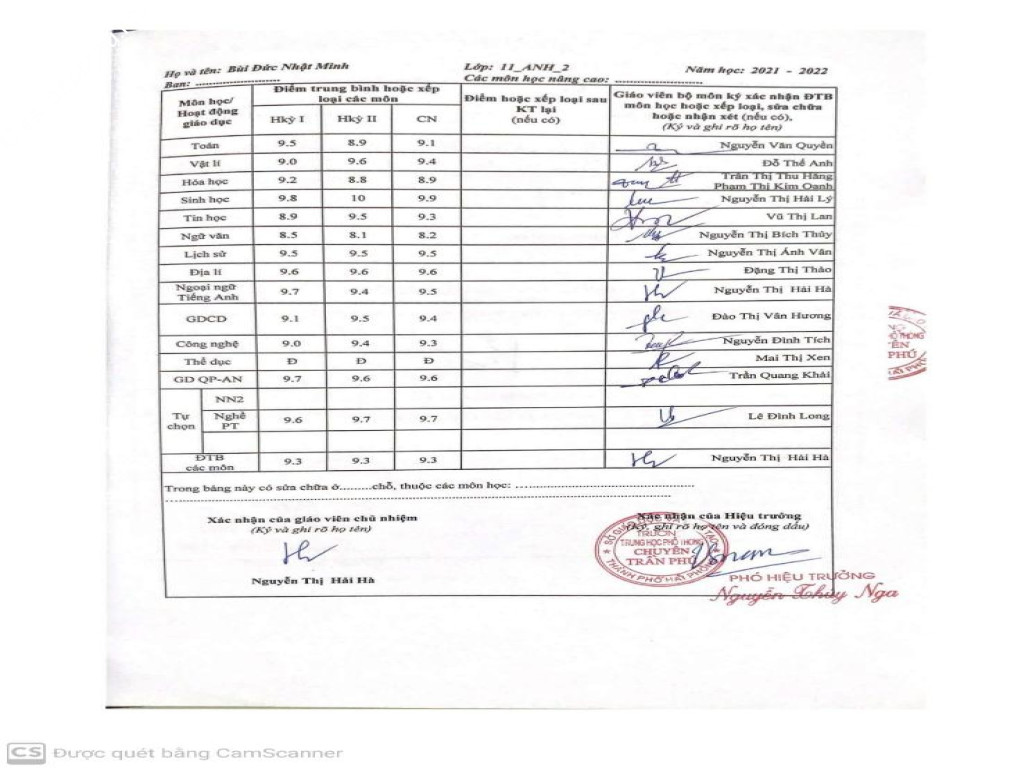 Họ và tên: Bùi Đức Nhật Minh Lớp: 11_ANH_2 Năm học: 2021 - 2022
Ban: ........................ Các môn học nâng cao: ........................
Môn học/ Hoạt động giáo dục Điểm trung bình hoặc xếp loại các môn Điểm hoặc xếp loại sau KT lại (nếu có) Giáo viên bộ môn ký xác nhận ĐTB môn học hoặc xếp loại, sửa chữa hoặc nhận xét (nếu có), (Ký và ghi rõ họ tên)
Hkỳ I Hkỳ II CN
Toán 9.5 8.9 9.1 Nguyễn Văn Quyền
Vật lí 9.0 9.6 9.4 Đỗ Thế Anh
Hóa học 9.2 8.8 8.9 Trần Thị Thu Hằng
Phạm Thị Kim Oanh
Sinh học 9.8 10 9.9 Nguyễn Thị Hải Lý
Tin học 8.9 9.5 9.3 Vũ Thị Lan
Ngữ văn 8.5 8.1 8.2 Nguyễn Thị Bích Thủy
Lịch sử 9.5 9.5 9.5 Nguyễn Thị Ánh Vân
Địa lí 9.6 9.6 9.6 Đặng Thị Thảo
Ngoại ngữ Tiếng Anh 9.7 9.4 9.5 Nguyễn Thị Hải Hà
GDCD 9.1 9.5 9.4 Đào Thị Vân Hương
Công nghệ 9.0 9.4 9.3 Nguyễn Đình Tích
Thể dục Đ Đ Đ Mai Thị Xen
GD QP-AN 9.7 9.6 9.6 Trần Quang Khải
Tự chọn
NN2
Nghề PT 9.6 9.7 9.7 Lê Đình Long
ĐTB các môn 9.3 9.3 9.3 Nguyễn Thị Hải Hà
Trong bảng này có sửa chữa ở.........chỗ, thuộc các môn học: ........................
Xác nhận của giáo viên chủ nhiệm
(Ký và ghi rõ họ tên)
Nguyễn Thị Hải Hà
Xác nhận của Hiệu trưởng
(Ký, ghi rõ họ tên và đóng dấu)
TRƯỜNG
TRUNG HỌC PHỔ THÔNG
CHUYÊN
TRẦN PHÚ
THÀNH PHỐ HẢI PHÒNG
PHÓ HIỆU TRƯỞNG
Nguyễn Thùy Nga
PHÚ
CS Được quét bằng CamScanner